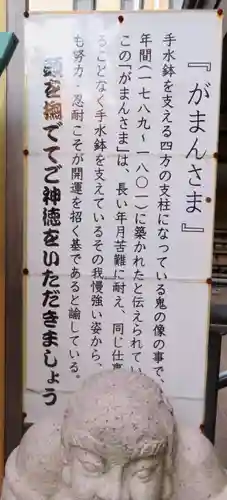 『がまんさま』
手水鉢を支える四方の支柱になっている鬼の像の事で、
年間(一七八九〜一八〇一)に築かれたと伝えられてい
この「がまんさま」は、長い年月苦難に耐え、同じ仕事
ることなく手水鉢を支えているその我慢強い姿から、
も努力・忍耐こそが開運を招く基であると諭している。
頭を撫でてご神徳をいただきましょう